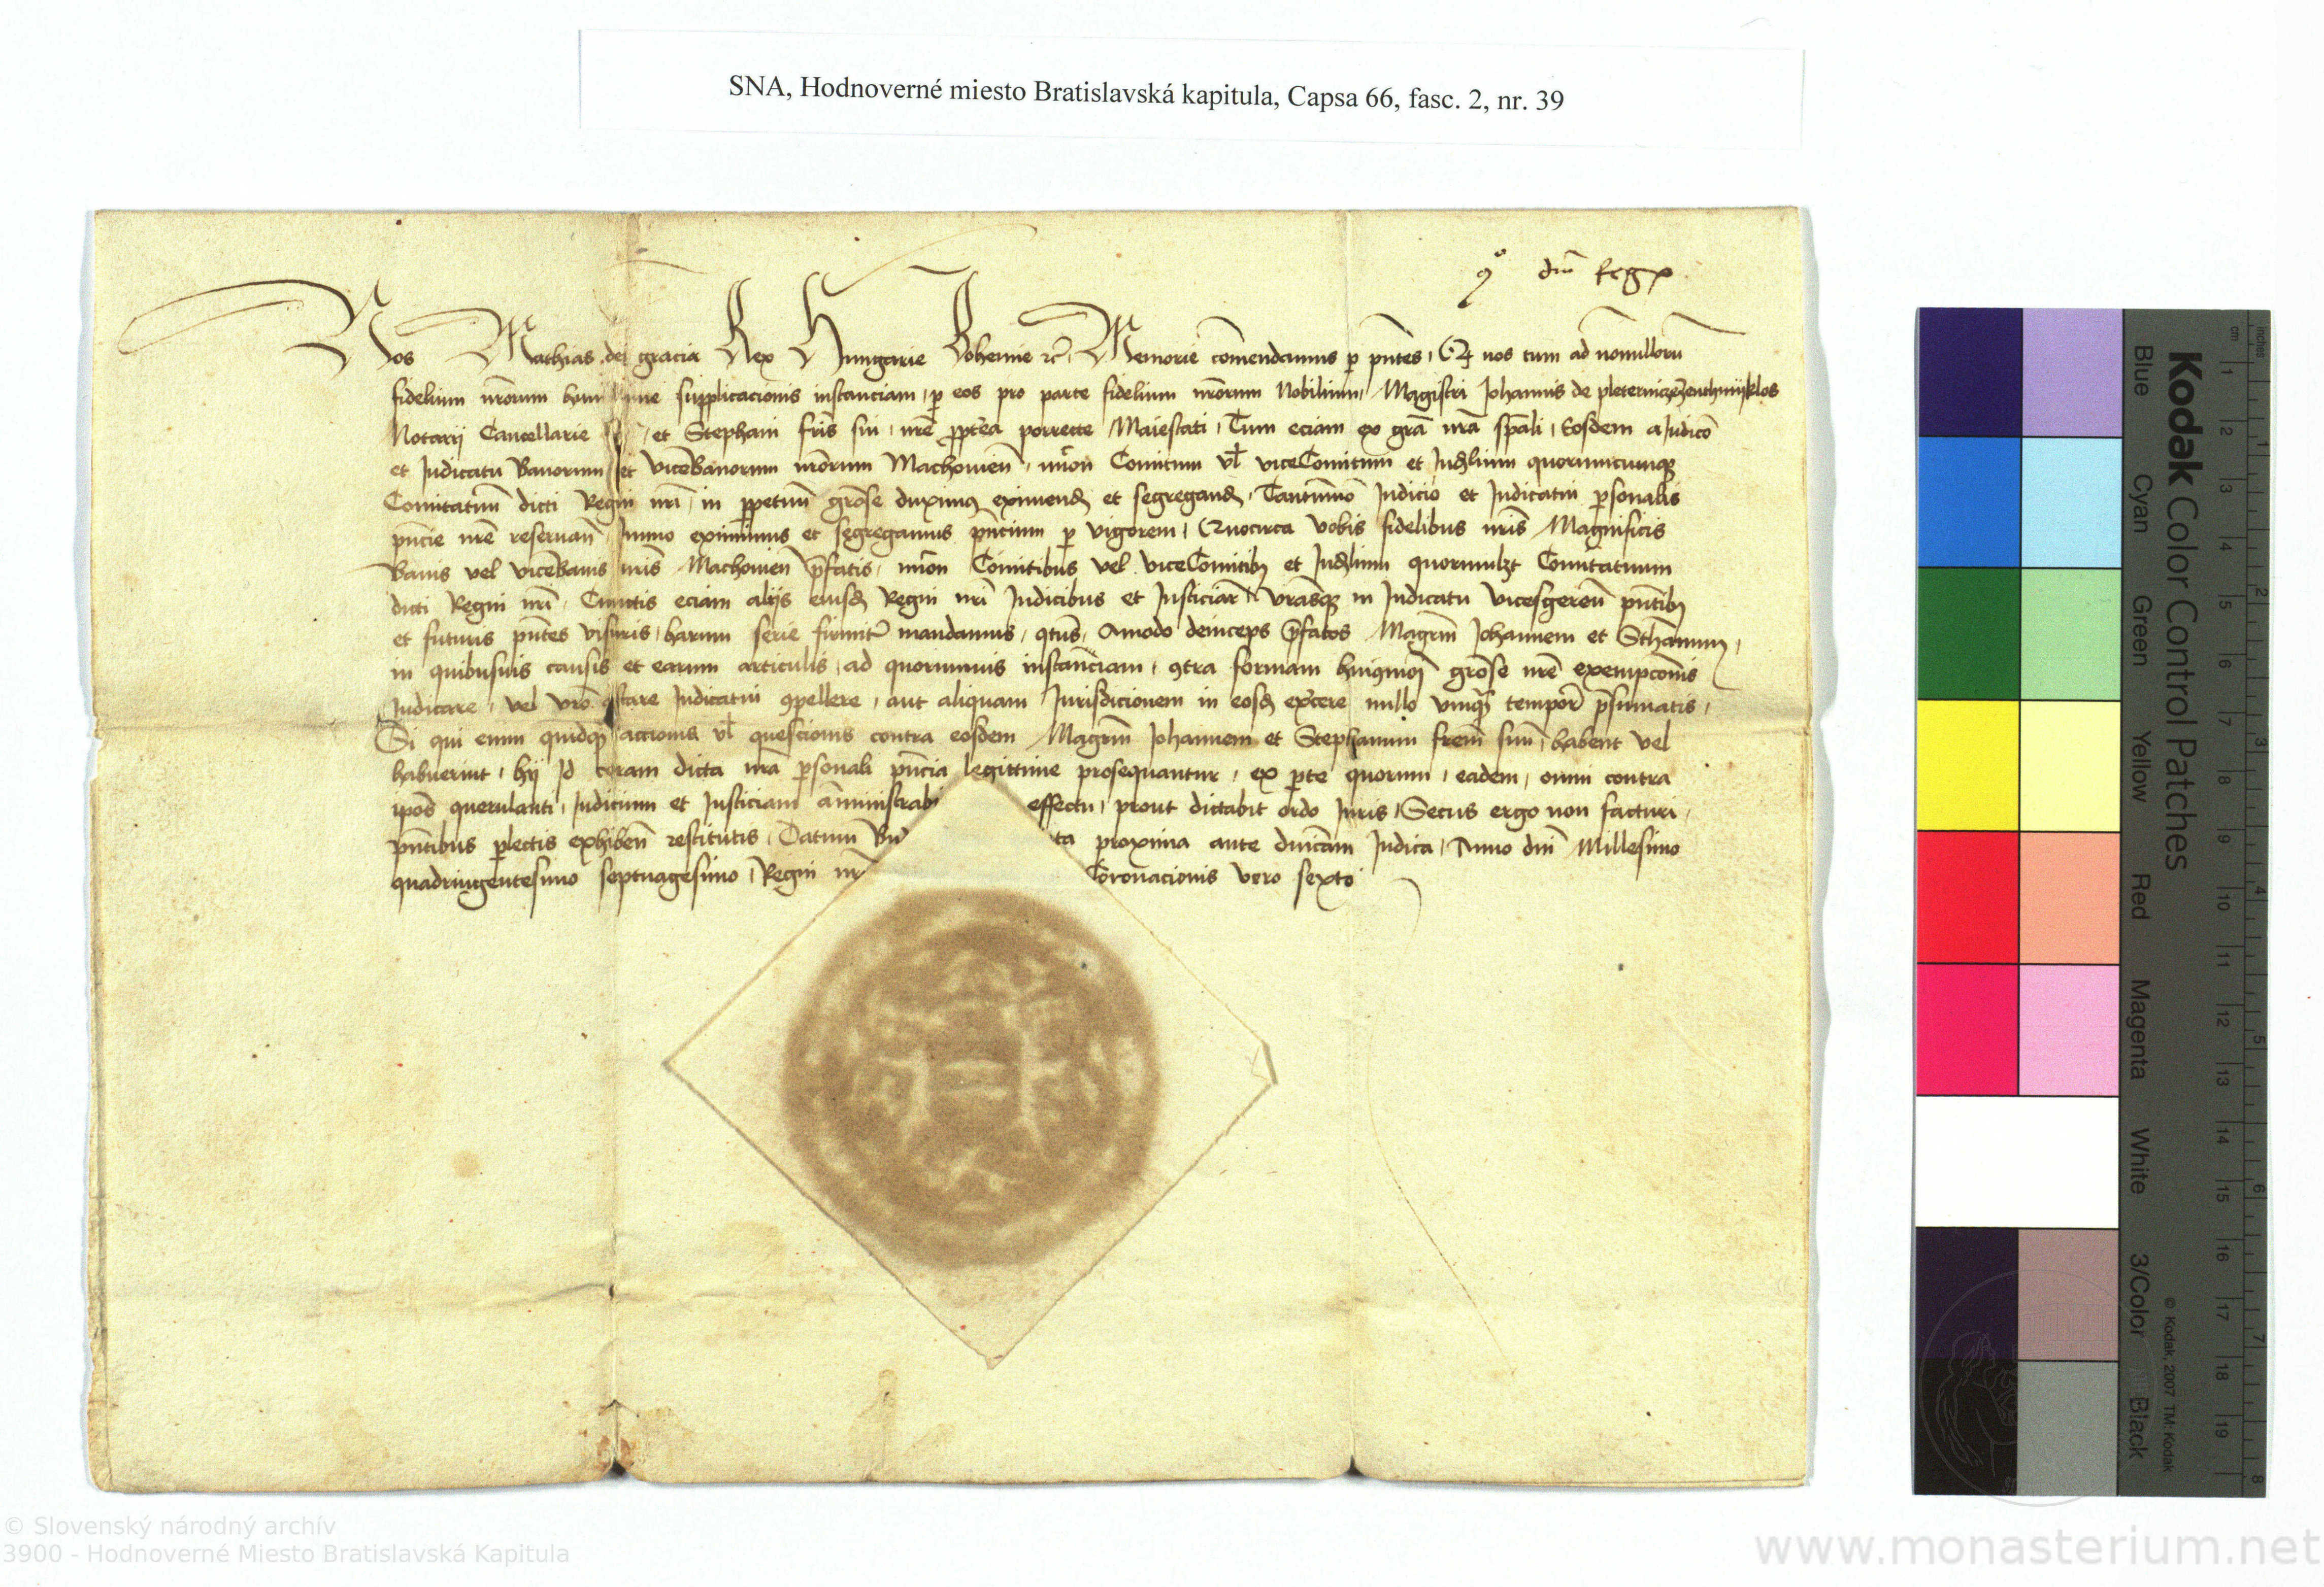 SNA, Hodnoverné miesto Bratislavská kapitula, Capsa 66, fasc. 2, nr. 39
dn̄i Reg
Nos Mathias dei gracia Rex Hungarie Bohemie rc̄ Memorie com̄endamus p̱ pn̄tes, nos tum ad nōnullorū
fidelium nr̄orum supplicacionis instanciam, p̱ eos pro parte fidelium nr̄orum Nobilium, Magistri Johannis de
Notarij Cancellarie et Stephani fr̄is sui, nr̄e propt̄ea porrecte Maiestati, Tum eciam ex gr̄a nr̄a sp̄ali, Eosdem a Judicō
et Judicatu Banorum et vicēbanorum nr̄orum Machouien̄, nn̄on Comitum vl̄ viceComitum et Judlium quorumcumqꝫ
Comitatuū dicti Regni nr̄i, in ꝑpetuū grōse duximꝰ eximend et segregand, Tantūmō Judicio et Judicatui ꝑsonalis
pn̄cie nr̄e reseruan̄, Immo eximimus et segregamus pn̄cium ꝑ vigorem, Quocirca vobis fidelibus nr̄is Magnificis
Banis vel vicēbanis nr̄is Machouien̄ p̄fatis, nn̄on Comitibus vel viceComitibꝫ et Judlium quorumlꝫt Comitatuum
dicti Regni nr̄i, Cunctis eciam alijs eiusd Regni nr̄i Judicibus et Justiciar̄ vr̄asqꝫ in Judicatu vicesgeren̄ pn̄tibꝫ
et futuris pn̄tes visuris, harum serie firmit̄ mandamus, qt̄us, Amodo deinceps p̄fatos Magr̄m Johannem et Stephanum,
in quibusuis causis et earum articulis, ad quorumuis instanciam, ꝯtra formam huiꝰmoi grōse nr̄e exempcōnis
Judicare, vel vr̄o astare Judicatui ꝯpellere, aut aliquam Jurisdicionem in eosd ex̄cere nullo vnqꝫ tempor̄ p̄sumatis,
Si qui enim quidqꝫ accionis vl̄ questionis contra eosdem Magr̄m Johannem et Stephanum frēm suū, habent vel
habuerint, hij Id coram dicta nr̄a ꝑsonali pn̄cia legittime prosequantur, ex ꝑte quorum, eadem, omni contra
ip̄os querulanti, Judicium et Justiciam am̄inistrabi effectu, prout dictabit ordo Juris, Secus ergo non facturi,
pn̄tibus ꝑlectis exhiben̄ restitutis, Datum Bu ta proxima ante dn̄icam Judica, Anno dn̄i Millesimo
quadringentesimo septuagesimo, Regni nr̄ Coronacionis vero sexto
Kodak Color Control Patches
Blue Cyan Green Yellow Red Magenta White 3/Color Black
© Kodak, 2007 TM: Kodak
inches 1 2 3 4 5 6 7 8
cm 1 2 3 4 5 6 7 8 9 10 11 12 13 14 15 16 17 18 19
© Slovenský národný archív
3900 - Hodnoverné Miesto Bratislavská Kapitula
www.monasterium.net